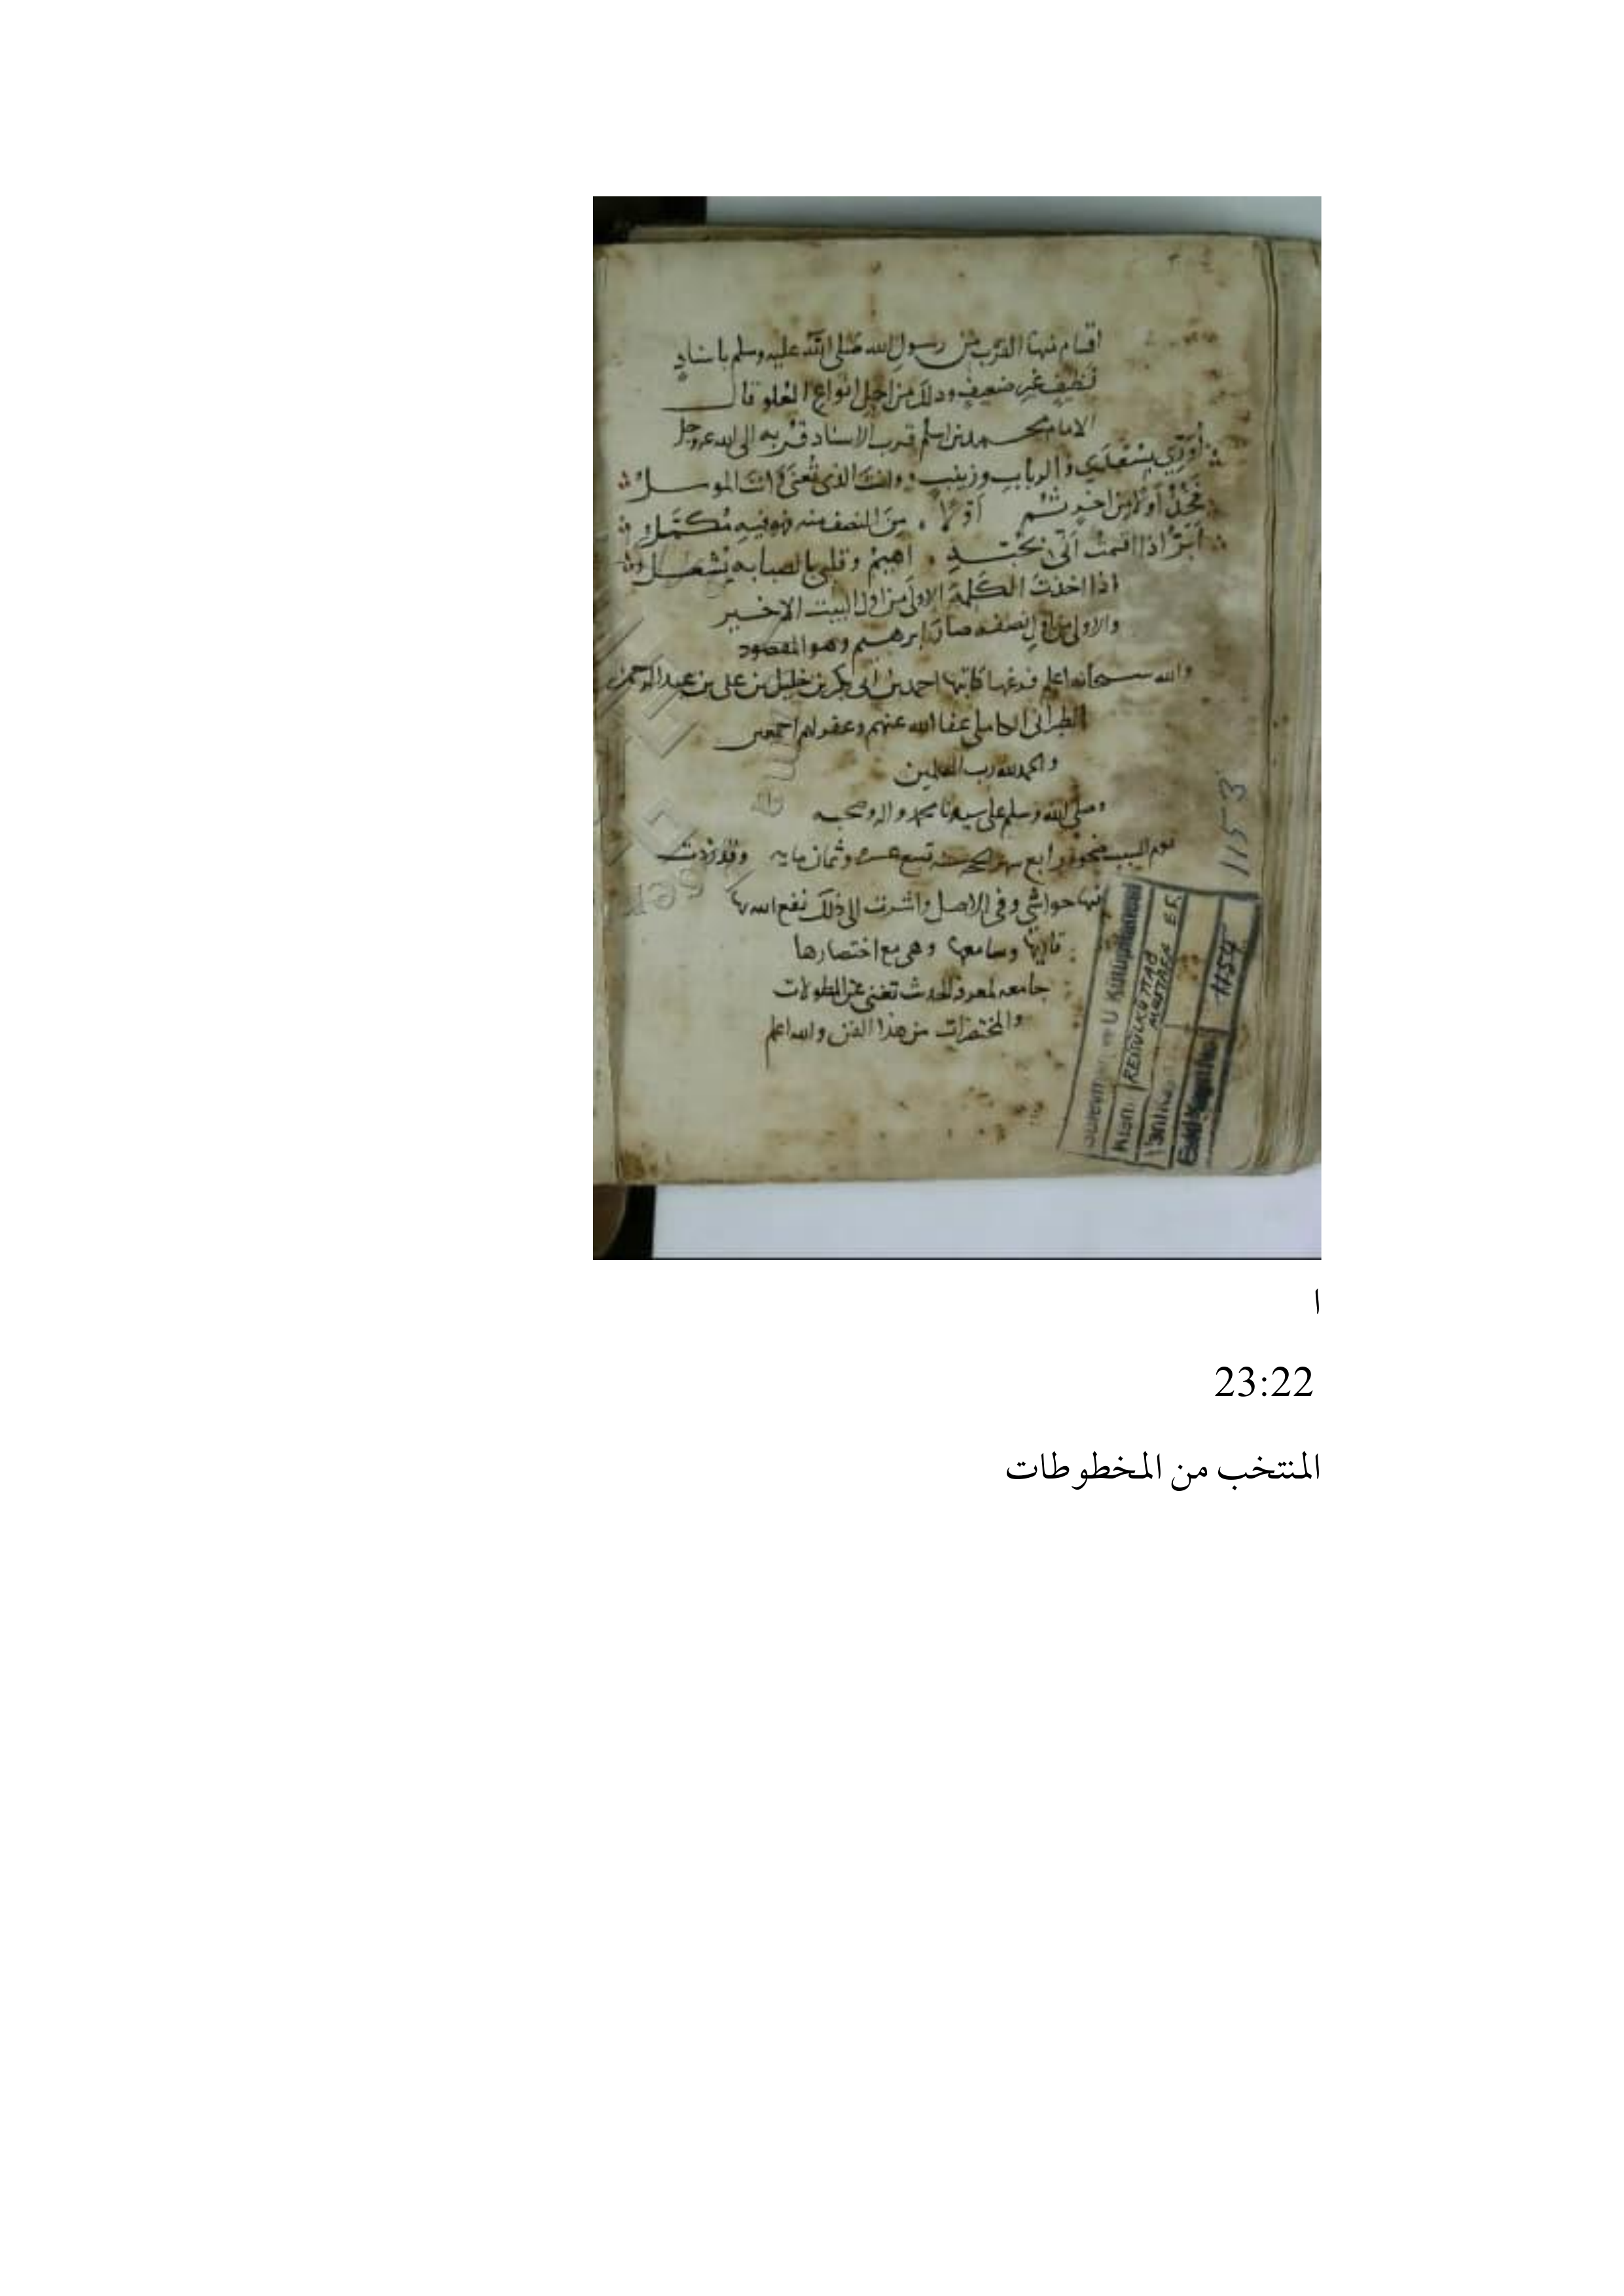 اقسام منها القرب من رسول الله صلى الله عليه وسلم باسناد
نظيف غير ضعيف وذلك من اجل انواع العلو قال
الامام محمد بن اسلم قرب الاسناد قربه الى الله عز وجل
أوَرِّي بسُعْدَى والرباب وزينب وانت الذى تُعنَى وانت الموسل
فخُذْ أولا من اخر ثم أولا من النصف منه فهو فيه مكمل
أبرّ اذا اقسمت أنى بحبه اهيم وقلبى بالصبابه يشعل
اذا اخذت الكلمة الاولى من اول البيت الاخير
والاولى من اول نصفه صار ابرهيم وهو المقصود
والله سبحانه اعلم فرغها كاتبها احمد بن ابى بكر بن خليل بن على بن عبد الرحمن
الطبرانى الكاملى عفا الله عنهم وغفر لهم اجمعين
والحمد لله رب العلمين
وصلى الله وسلم على سيدنا محمد واله وصحبه
يوم السبت رابع شهر سنه تسع عشره وثمان مايه وقد زدت
فيها حواشي وفى الاصل واشرت الى ذلك نفع الله بها
قاريها وسامعها وهى مع اختصارها
جامعه لمعرفة الحديث تغنى عن المطولات
والمختصرات من هذا الفن والله اعلم
1153
U Kütüphanesi
REİSÜLKÜTTAB
MUSTAFA EF.
1154
ا
23:22
المنتخب من المخطوطات